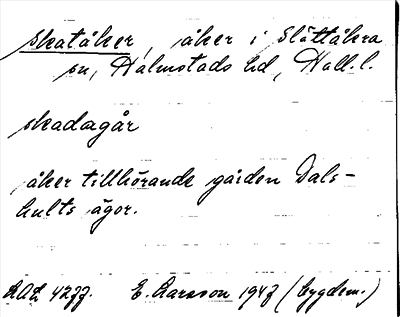 skatåker, åker i Slättåkra
sn, Halmstads hd, Hall. l.
skadagår
åker tillhörande gården Dals-
hults ägor.
E. Larsson 1947 (bygdem.)